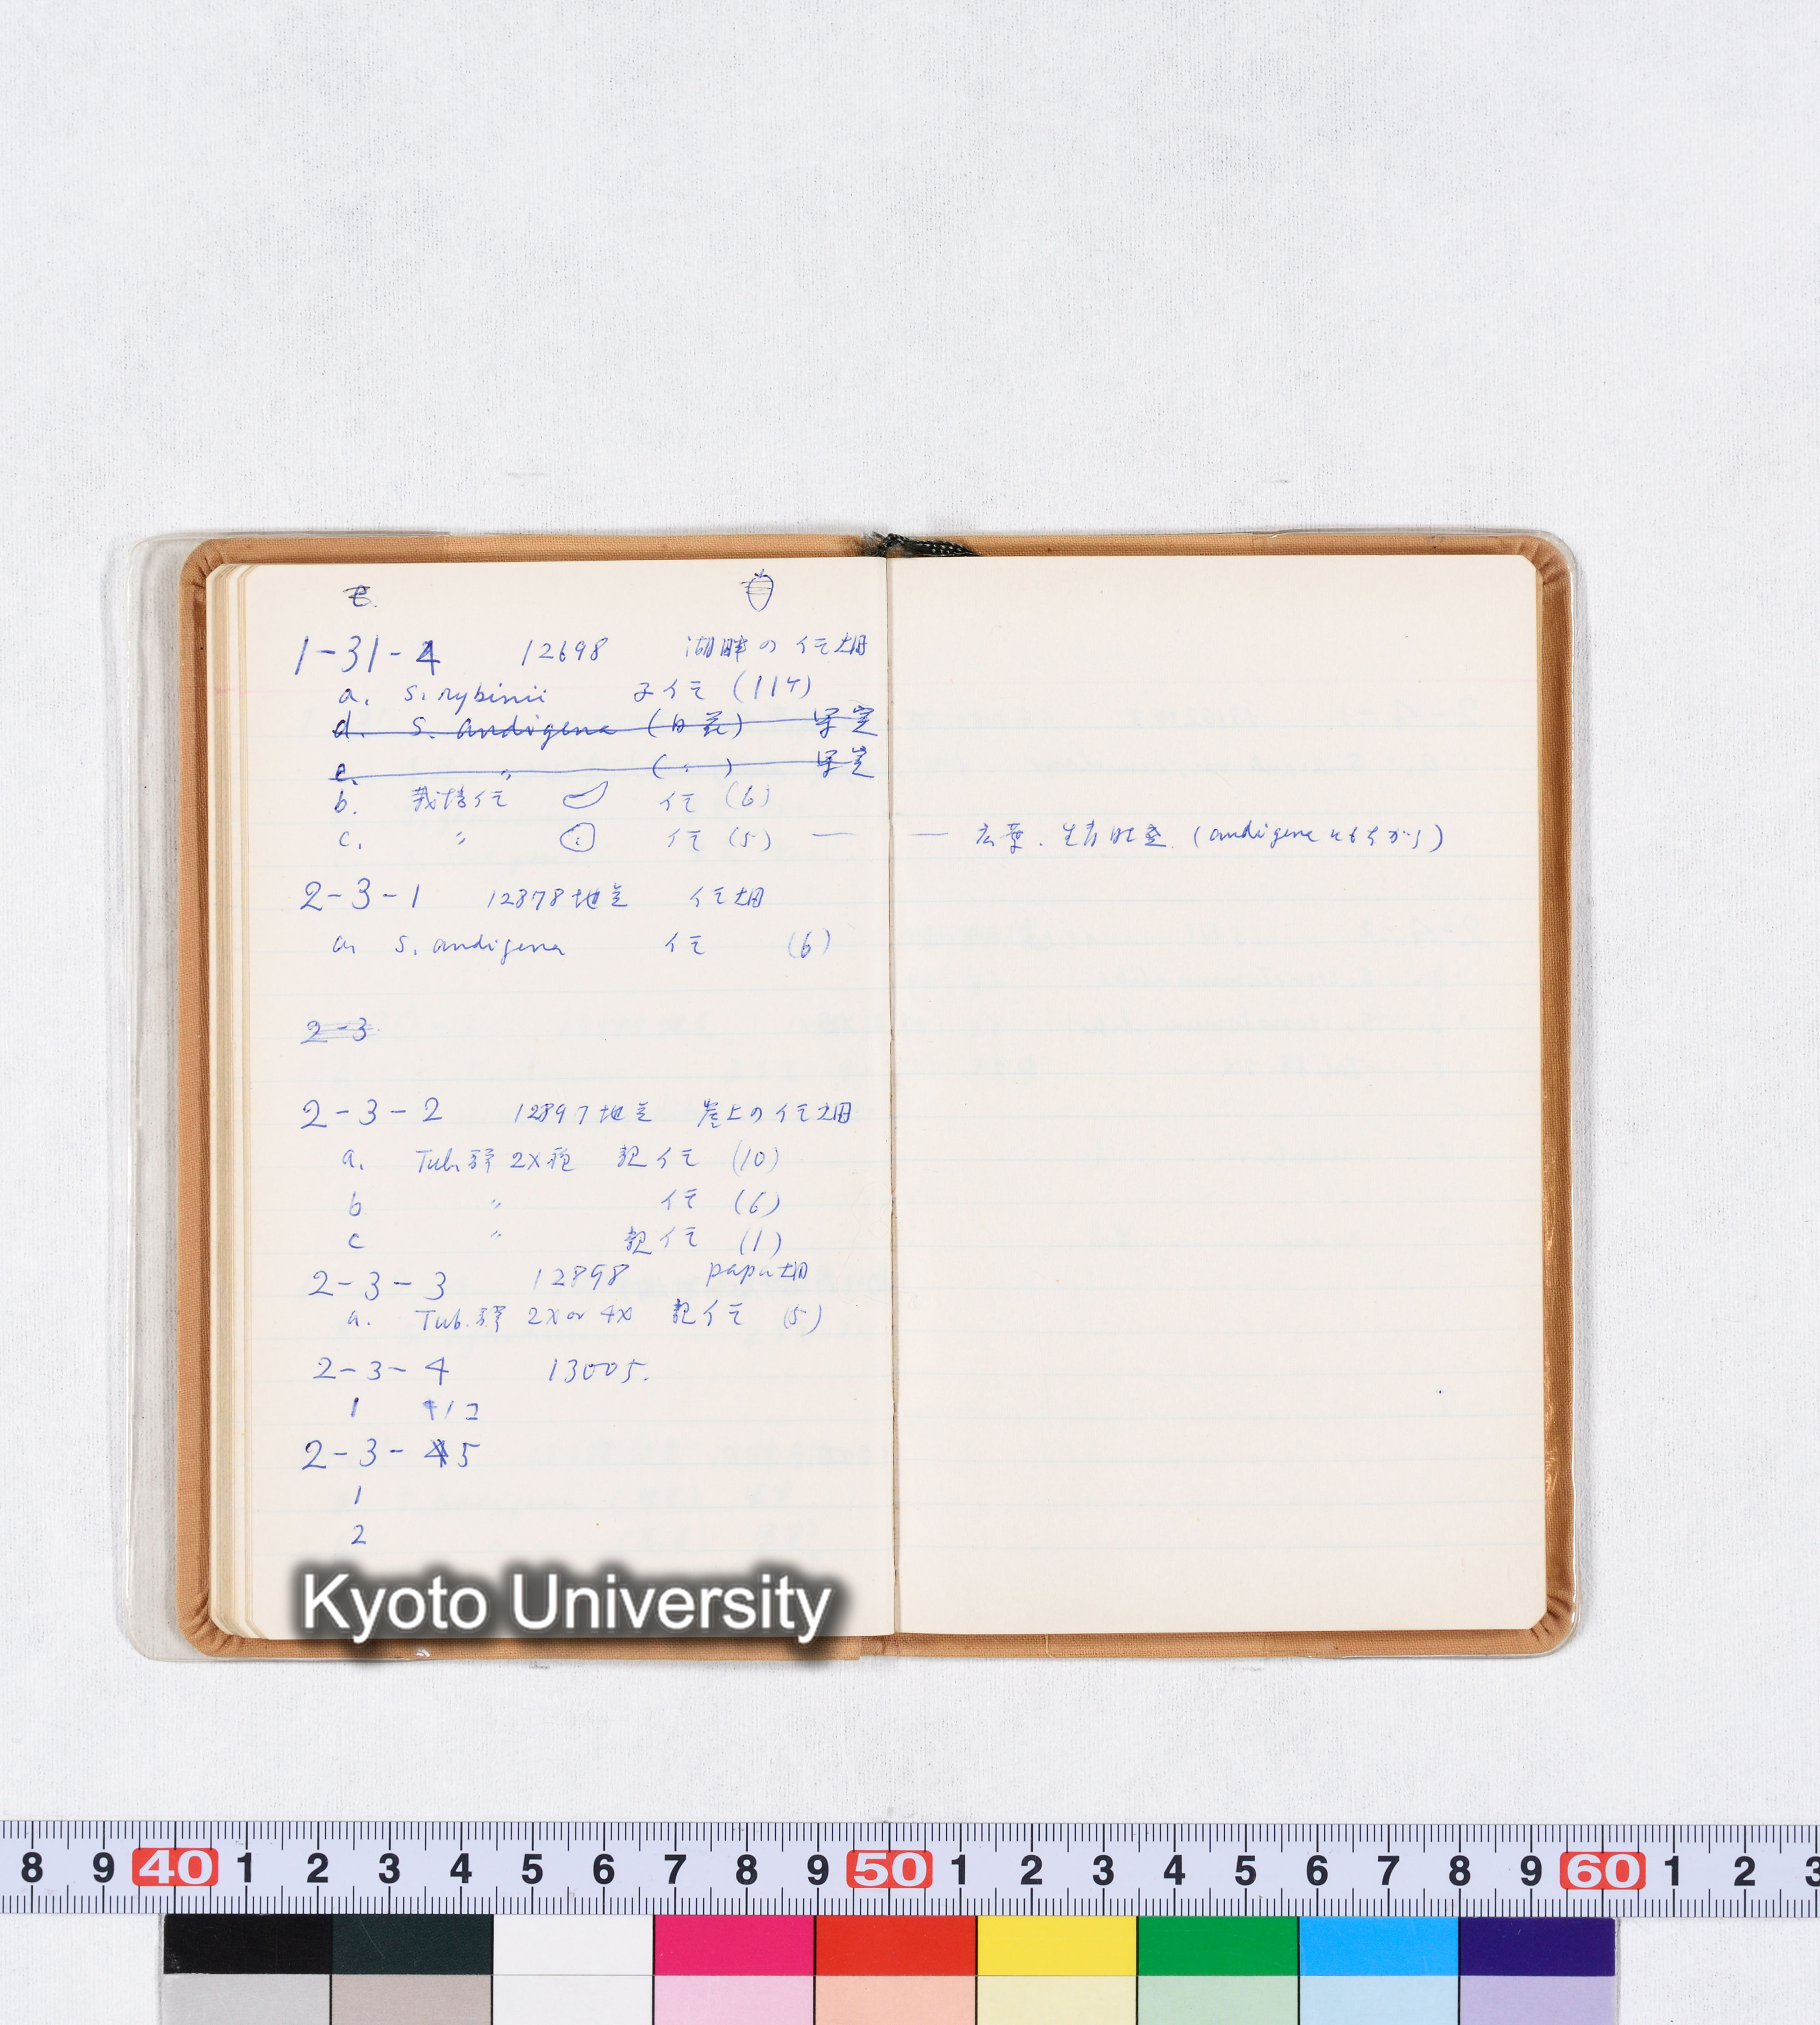 1-31-4 12698 湖畔の 仁畑
a. S. rybinii 子仁 (11ケ)
d. S. andigena (白花)
e. 〃 ( 〃 )
b. 栽培仁 仁 (6)
c. 〃 仁 (5) —
— 広葉. 生育旺盛. (andigena にもちがう)
2-3-1 12878地点 仁畑
a. S. andigena 仁 (6)
2-3
2-3-2 12897地点 崖上の仁畑
a. Tub. 群 2X 親仁 (10)
b 〃 仁 (6)
c 〃 親仁 (1)
2-3-3 12898 papa畑
a. Tub. 群 2X or 4X 親仁 (5)
2-3-4 13005.
1 1コ
2-3-5
1
2
Kyoto University
8 9 40 1 2 3 4 5 6 7 8 9 50 1 2 3 4 5 6 7 8 9 60 1 2 3